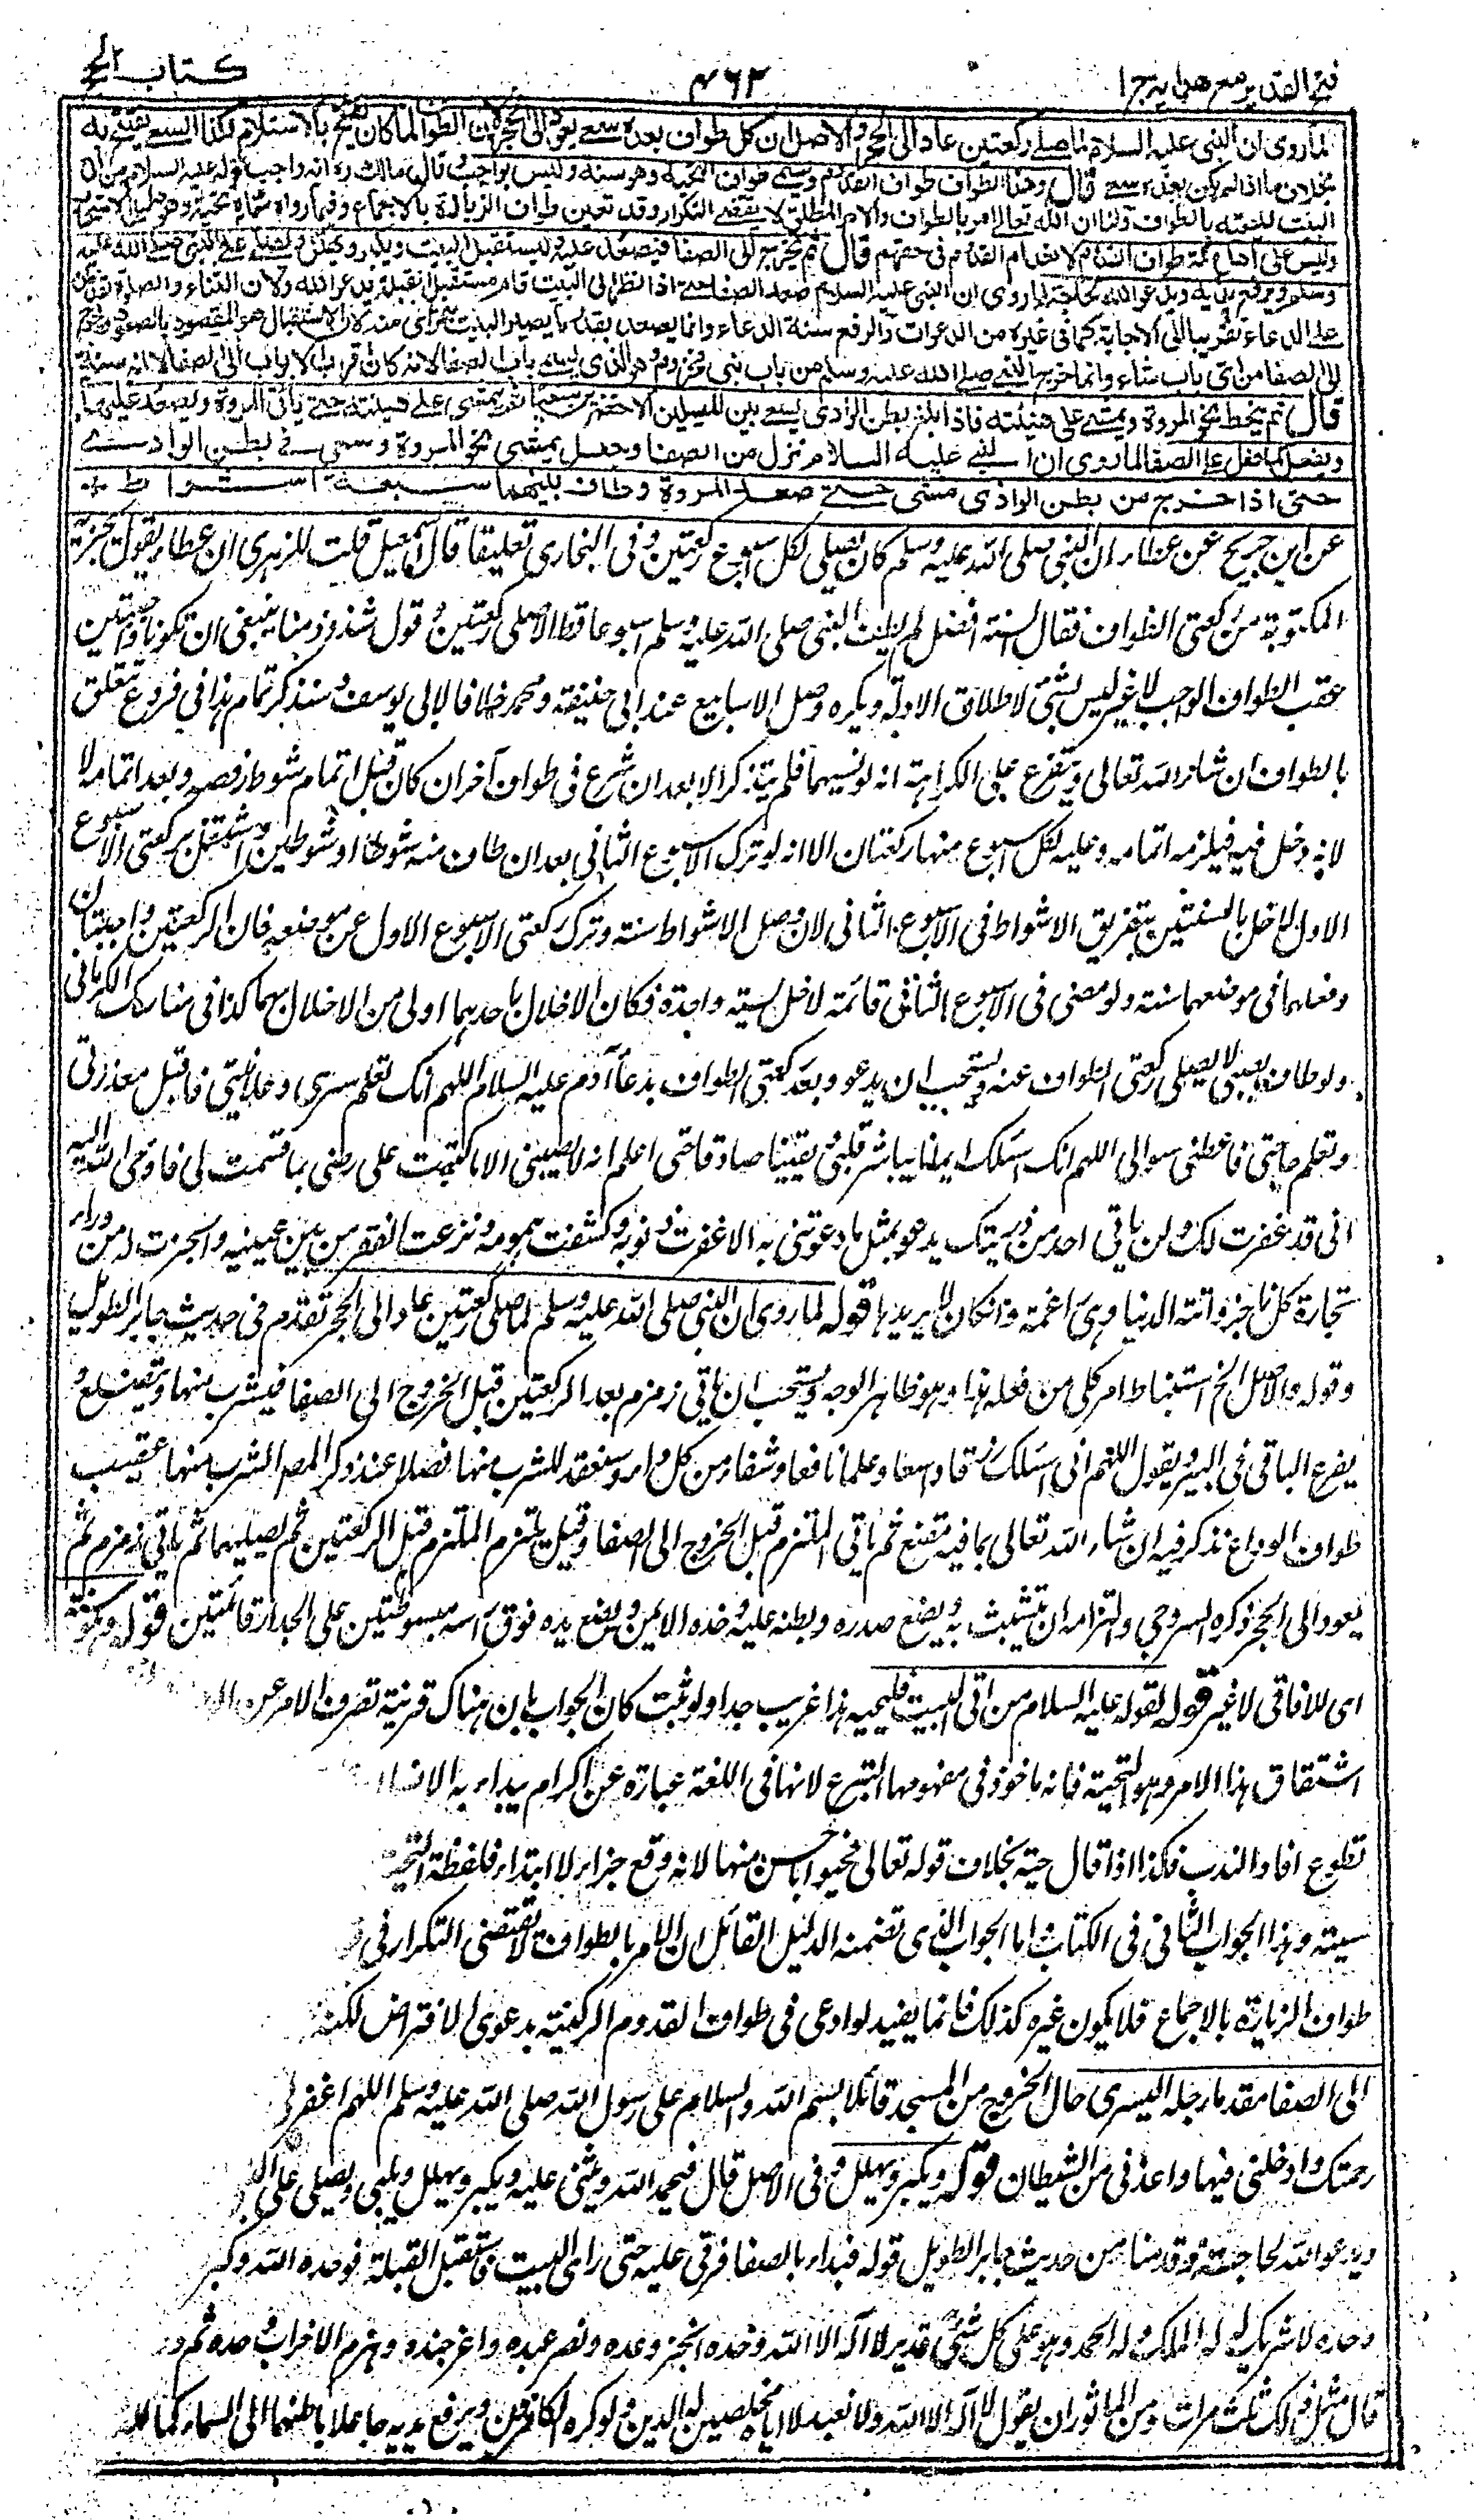 فتح القدير مع هدايه ج ١
٤٦٢
كتاب الحج
لما روى ان النبى عليه السلام لما صلى ركعتين عاد الى الحجر والاصل ان كل طواف بعده سعى يعود الى الحجر لان الطواف لما كان يفتتح بالاستلام فكذا السعى يفتتح به
بخلاف ما اذا لم يكن بعده سعى قال وهذا الطواف طواف القدوم ويسمى طواف التحية وهو سنة وليس بواجب وقال مالك ره انه واجب لقوله عليه السلام من اتى
البيت فليحيه بالطواف ولنا ان الله تعالى امر بالطواف والامر المطلق لا يقتضى التكرار وقد تعين طواف الزيارة بالاجماع وفيما رواه سماه تحية وهو دليل الاستحباب
وليس على اهل مكة طواف القدوم لانعدام القدوم فى حقهم قال ثم يخرج الى الصفا فيصعد عليه ويستقبل البيت ويكبر ويهلل ويصلى على النبى صلى الله عليه
وسلم ويرفع يديه ويدعو الله لحاجته لما روى ان النبى عليه السلام صعد الصفا حتى اذا نظر الى البيت قام مستقبل القبلة يدعو الله ولان الثناء والصلوة يقدمان
على الدعاء تقريبا الى الاجابة كما فى غيره من الدعوات والرفع سنة الدعاء وانما يصعد بقدر ما يصير البيت بمرأى منه لان الاستقبال هو المقصود بالصعود ويخرج
الى الصفا من اى باب شاء وانما خرج النبى صلى الله عليه وسلم من باب بنى مخزوم وهو الذى يسمى باب الصفا لانه كان اقرب الابواب الى الصفا لا انه سنة
قال ثم ينحط نحو المروة ويمشى على هينته فاذا بلغ بطن الوادى يسعى بين الميلين الاخضرين سعيا ثم يمشى على هينته حتى ياتى المروة ويصعد عليها
ويفعل كما فعل على الصفا لما روى ان النبى عليه السلام نزل من الصفا وجعل يمشى نحو المروة وسعى فى بطن الوادى
حتى اذا خرج من بطن الوادى مشى حتى صعد المروة وطاف بينهما سبعة اشواط
عن ابن جريج عن عطاء ان النبى صلى الله عليه وسلم كان يصلى لكل اسبوع ركعتين وفى البخارى تعليقا قال اسمعيل قلت للزهرى ان عطاء يقول تجزئه
المكتوبة من ركعتى الطواف فقال السنة افضل لم يطف النبى صلى الله عليه وسلم اسبوعا قط الا صلى ركعتين وقول شذوذ منا ينبغى ان تكونا واجبتين
عقب الطواف الواجب لا غير ليس بشئ لاطلاق الادلة ويكره وصل الاسابيع عند ابى حنيفة ومحمد خلافا لابى يوسف وسنذكر تمام هذا فى فروع تتعلق
بالطواف ان شاء الله تعالى ويتفرع على الكراهة انه لو نسيهما فلم يتذكر الا بعد ان شرع فى طواف آخر ان كان قبل اتمام شوط رفضه وبعد اتمامه لا
لانه دخل فيه فيلزمه اتمامه وعليه لكل اسبوع منها ركعتان الا انه لو ترك الاسبوع الثانى بعد ان طاف منه شوطا او شوطين واشتغل بركعتى الاسبوع
الاول لاخل بالسنتين بتفريق الاشواط فى الاسبوع الثانى لان وصل الاشواط سنة وترك ركعتى الاسبوع الاول عن موضعه فان الركعتين واجبتان
وفعلهما فى موضعهما سنة ولو مضى فى الاسبوع الثانى قائمة لاخل بسنة واحدة فكان الاخلال باحدهما اولى من الاخلال بهما كذا فى مناسك الكرمانى
ولو طاف بصبى لا يصلى ركعتى الطواف عنه ويستحب ان يدعو بعد ركعتى الطواف بدعاء آدم عليه السلام اللهم انك تعلم سرى وعلانيتى فاقبل معذرتى
وتعلم حاجتى فاعطنى سوالى اللهم انى اسئلك ايمانا يباشر قلبى ويقينا صادقا حتى اعلم انه لا يصيبنى الا ما كتبت على ورضنى بما قسمت لى فاوحى الله اليه
انى قد غفرت لك ولن ياتى احد من ذريتك يدعو بمثل ما دعوتنى به الا غفرت ذنوبه وكشفت همومه ونزعت الفقر من بين عينيه وانجزت له من وراء
تجارة كل تاجز واتته الدنيا وهى راغمة وان كان لا يريدها قوله لما روى ان النبى صلى الله عليه وسلم لما صلى ركعتين عاد الى الحجر تقدم فى حديث جابر الطويل
وقوله والاصل الخ استنباط امر كلى من فعله هذا وهو ظاهر الوجه ويستحب ان ياتى زمزم بعد الركعتين قبل الخروج الى الصفا فيشرب منها ويتضلع و
يفرغ الباقى فى البير ويقول اللهم انى اسئلك رزقا واسعا وعلما نافعا وشفاء من كل داء وسنعقد للشرب منها فصلا عند ذكر المصـ الشرب منها عقيب
طواف الوداع نذكر فيه ان شاء الله تعالى بما فيه مقنع ثم ياتى الملتزم قبل الخروج الى الصفا وقيل يلتزم الملتزم قبل الركعتين ثم يصليهما ثم ياتى زمزم ثم
يعود الى الحجر ذكره السروجى والتزامه ان يتشبث به ويضع صدره وبطنه عليه وخده الايمن ويضع يديه فوق راسه مبسوطتين على الجدار قائمتين قوله وهو سنة
اى للافاقى لا غير قوله لقوله عليه السلام من اتى البيت فليحيه هذا غريب جدا ولو ثبت كان الجواب بان هناك قرينة تصرف الامر عن
اشتقاق هذا الامر وهو التحية فانه ماخوذ فى مفهومها التبرع لانها فى اللغة عبارة عن اكرام يبداء به الانسا
تطوع افاد الندب فكذا اذا قال حية بخلاف قوله تعالى فحيوا باحسن منها لانه وقع جزاء لا ابتداء فلفظة التحـ
سيته وهذا الجواب الثانى فى الكتاب اما الجواب الذى تضمنه الدليل القائل ان الامر بالطواف لا يقتضى التكرار فى
طواف الزيارة بالاجماع فلا يكون غيره كذلك فانما يفيد لو ادعى فى طواف القدوم الركنية بدعوى الافتراض لكنه
الى الصفا مقدما رجله اليسرى حال الخروج من المسجد قائلا بسم الله والسلام على رسول الله صلى الله عليه وسلم اللهم اغفر لى
رحمتك وادخلنى فيها واعذنى من الشيطان قوله ويكبر ويهلل وفى الاصل قال فيحمد الله ويثنى عليه ويكبر ويهلل ويلبى ويصلى على
ويدعو الله لحاجته وقدمنا من حديث جابر الطويل قوله فبداء بالصفا فرقى عليه حتى راى البيت فاستقبل القبلة فوحد الله وكبر
وحده لا شريك له له الملك وله الحمد وهو على كل شئ قدير لا اله الا الله وحده انجز وعده ونصر عبده واعز جنده وهزم الاحزاب وحده ثم
قال مثل ذلك ثلث مرات ومن الماثور ان يقول لا اله الا الله ولا نعبد الا اياه مخلصين له الدين ولو كره الكافرون ويرفع يديه جاعلا باطنهما الى السماء كما